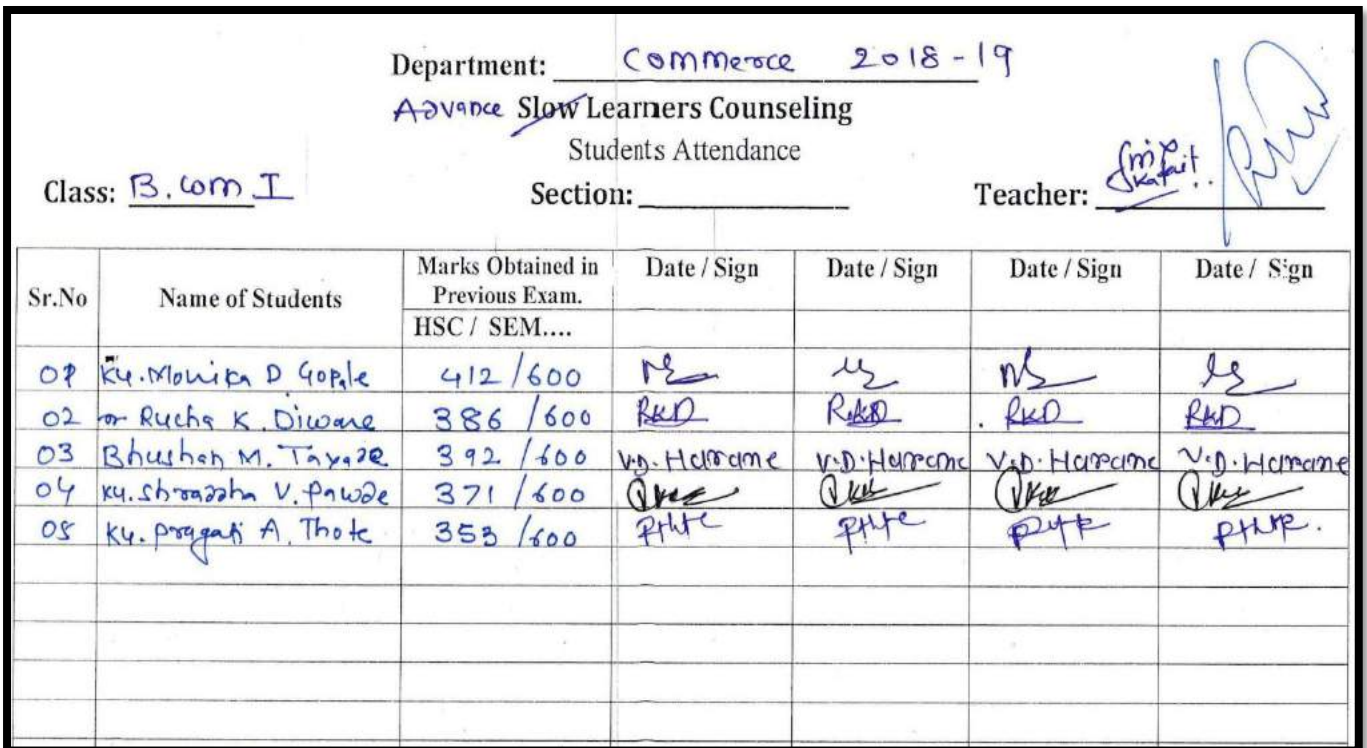 Department: Commerce 2018-19
Advance Slow Learners Counseling
Students Attendance
Class: B.com I Section: Teacher:
Sr.No Name of Students Marks Obtained in Previous Exam. Date / Sign Date / Sign Date / Sign Date / Sign
HSC / SEM....
01 Ku. Monika D Gopale 412/600
02 Rucha K. Diware 386/600 RKD RKD RKD RKD
03 Bhushan M. Tayade 392/600 V.D. Harane V.D. Harane V.D. Harane V.D. Harane
04 Ku. Shraddha V. Pawde 371/600
05 Ku. Pragati A. Thote 353/600